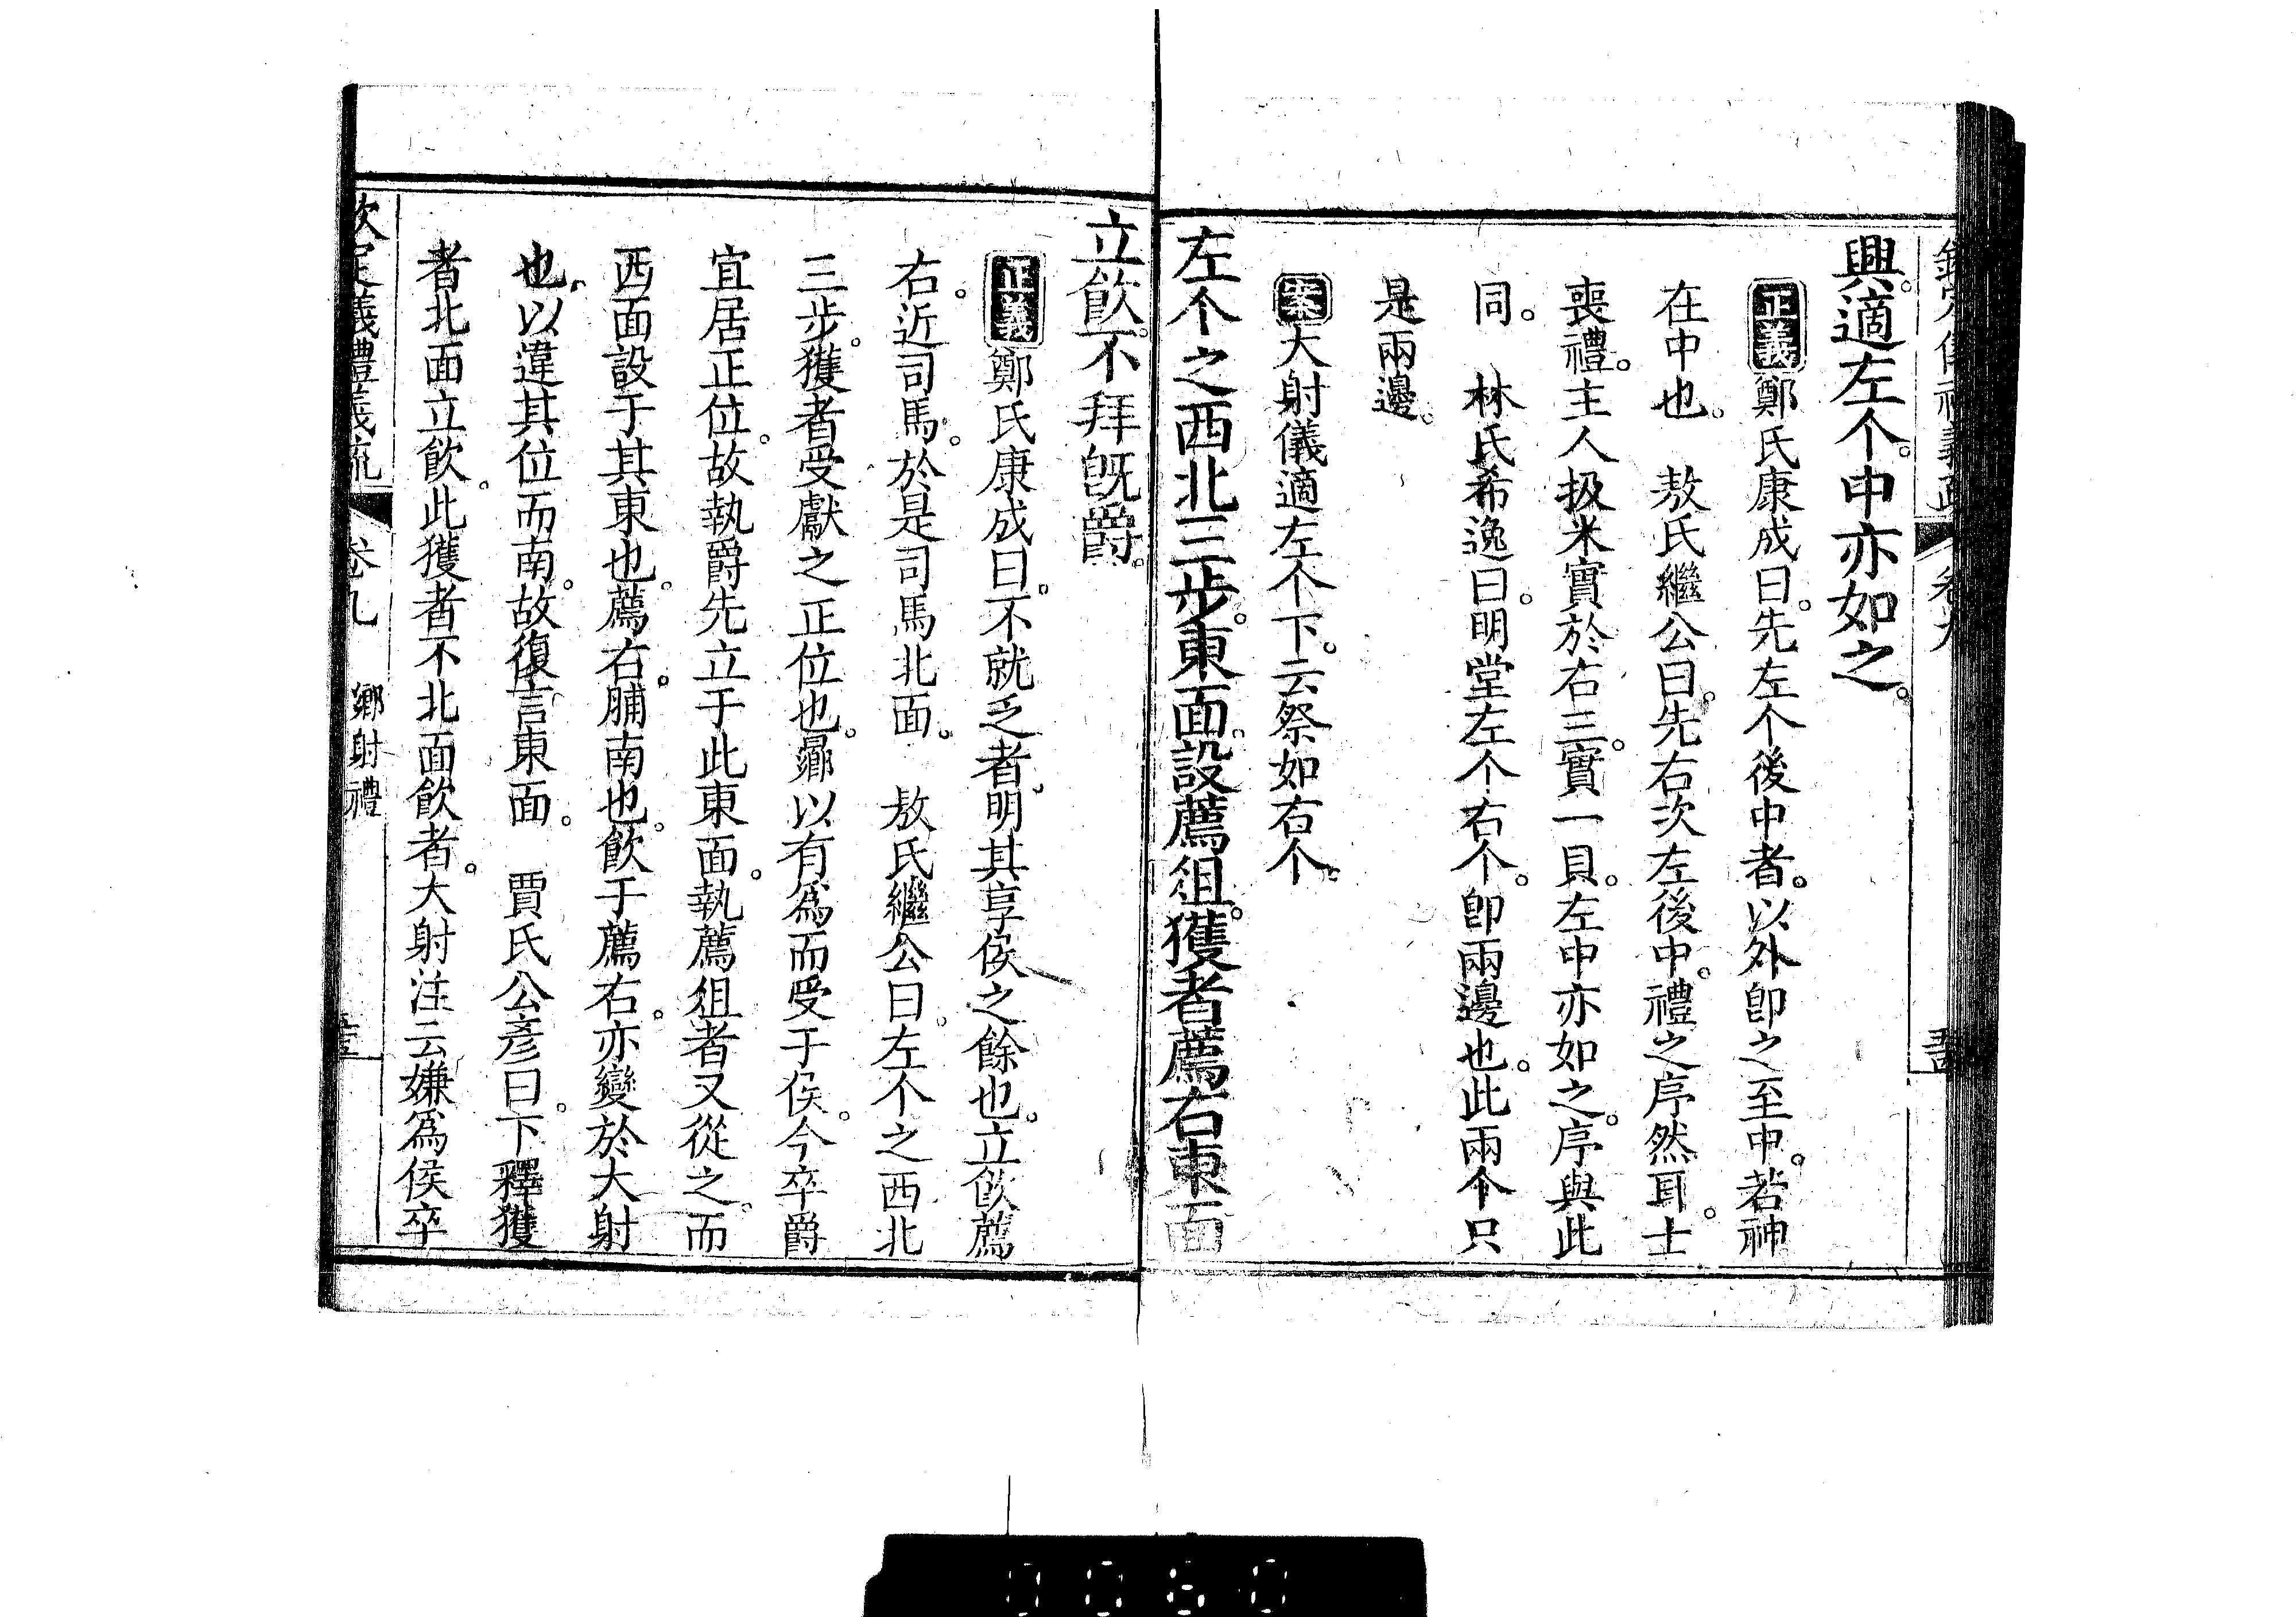 興。適左个。中亦如之。
正義鄭氏康成曰。先左个後中者。以外卽之至中。若神
在中也。　敖氏繼公曰。先右次左後中。禮之序然耳。士
喪禮。主人扱米實於右三。實一貝。左中亦如之。序與此
同。　林氏希逸曰。明堂左个右个。卽兩邊也。此兩个只
是兩邊。
案大射儀適左个下。云祭如右个。
左个之西北三步。東面。設薦俎。獲者薦右東面
立飮。不拜旣爵。
正義鄭氏康成曰。不就乏者。明其享侯之餘也。立飮薦
右。近司馬。於是司馬北面。　敖氏繼公曰。左个之西北
三步。獲者受獻之正位也。曏以有爲而受于侯。今卒爵
宜居正位。故執爵先立于此東面。執薦俎者又從之。而
西面設于其東也。薦右。脯南也。飮于薦右。亦變於大射
也。以違其位而南。故復言東面。　賈氏公彥曰。下釋獲
者北面立飮。此獲者不北面飮者。大射注云嫌爲侯卒
欽定儀禮義疏　卷九　鄉射禮